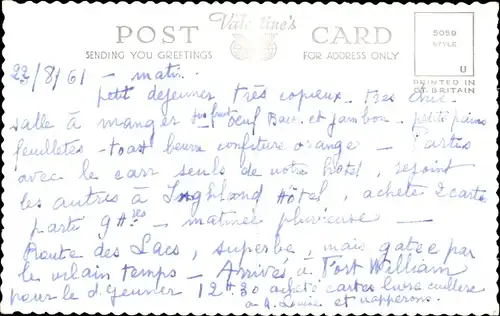 POST Valentine's CARD
SENDING YOU GREETINGS FOR ADDRESS ONLY
5059
STYLE
U
PRINTED IN
GT. BRITAIN
22/8/61 - matin.
petit dejeuner très copieux. Très chic
salle à manger jus fruit oeuf Bacon et jambon - petits pains
feuilletés - toast beurre confiture orange - Partis
avec le car seuls de notre hotel, rejoint
les autres à Highland Hôtel, acheté 2 carte
parti 9 Hres - matinée pluvieuse -
Route des Lacs, superbe, mais gatée par
le vilain temps - Arrivés à Fort William
pour le déjeuner 12 H 30 acheté cartes cuillere
à et napperons.